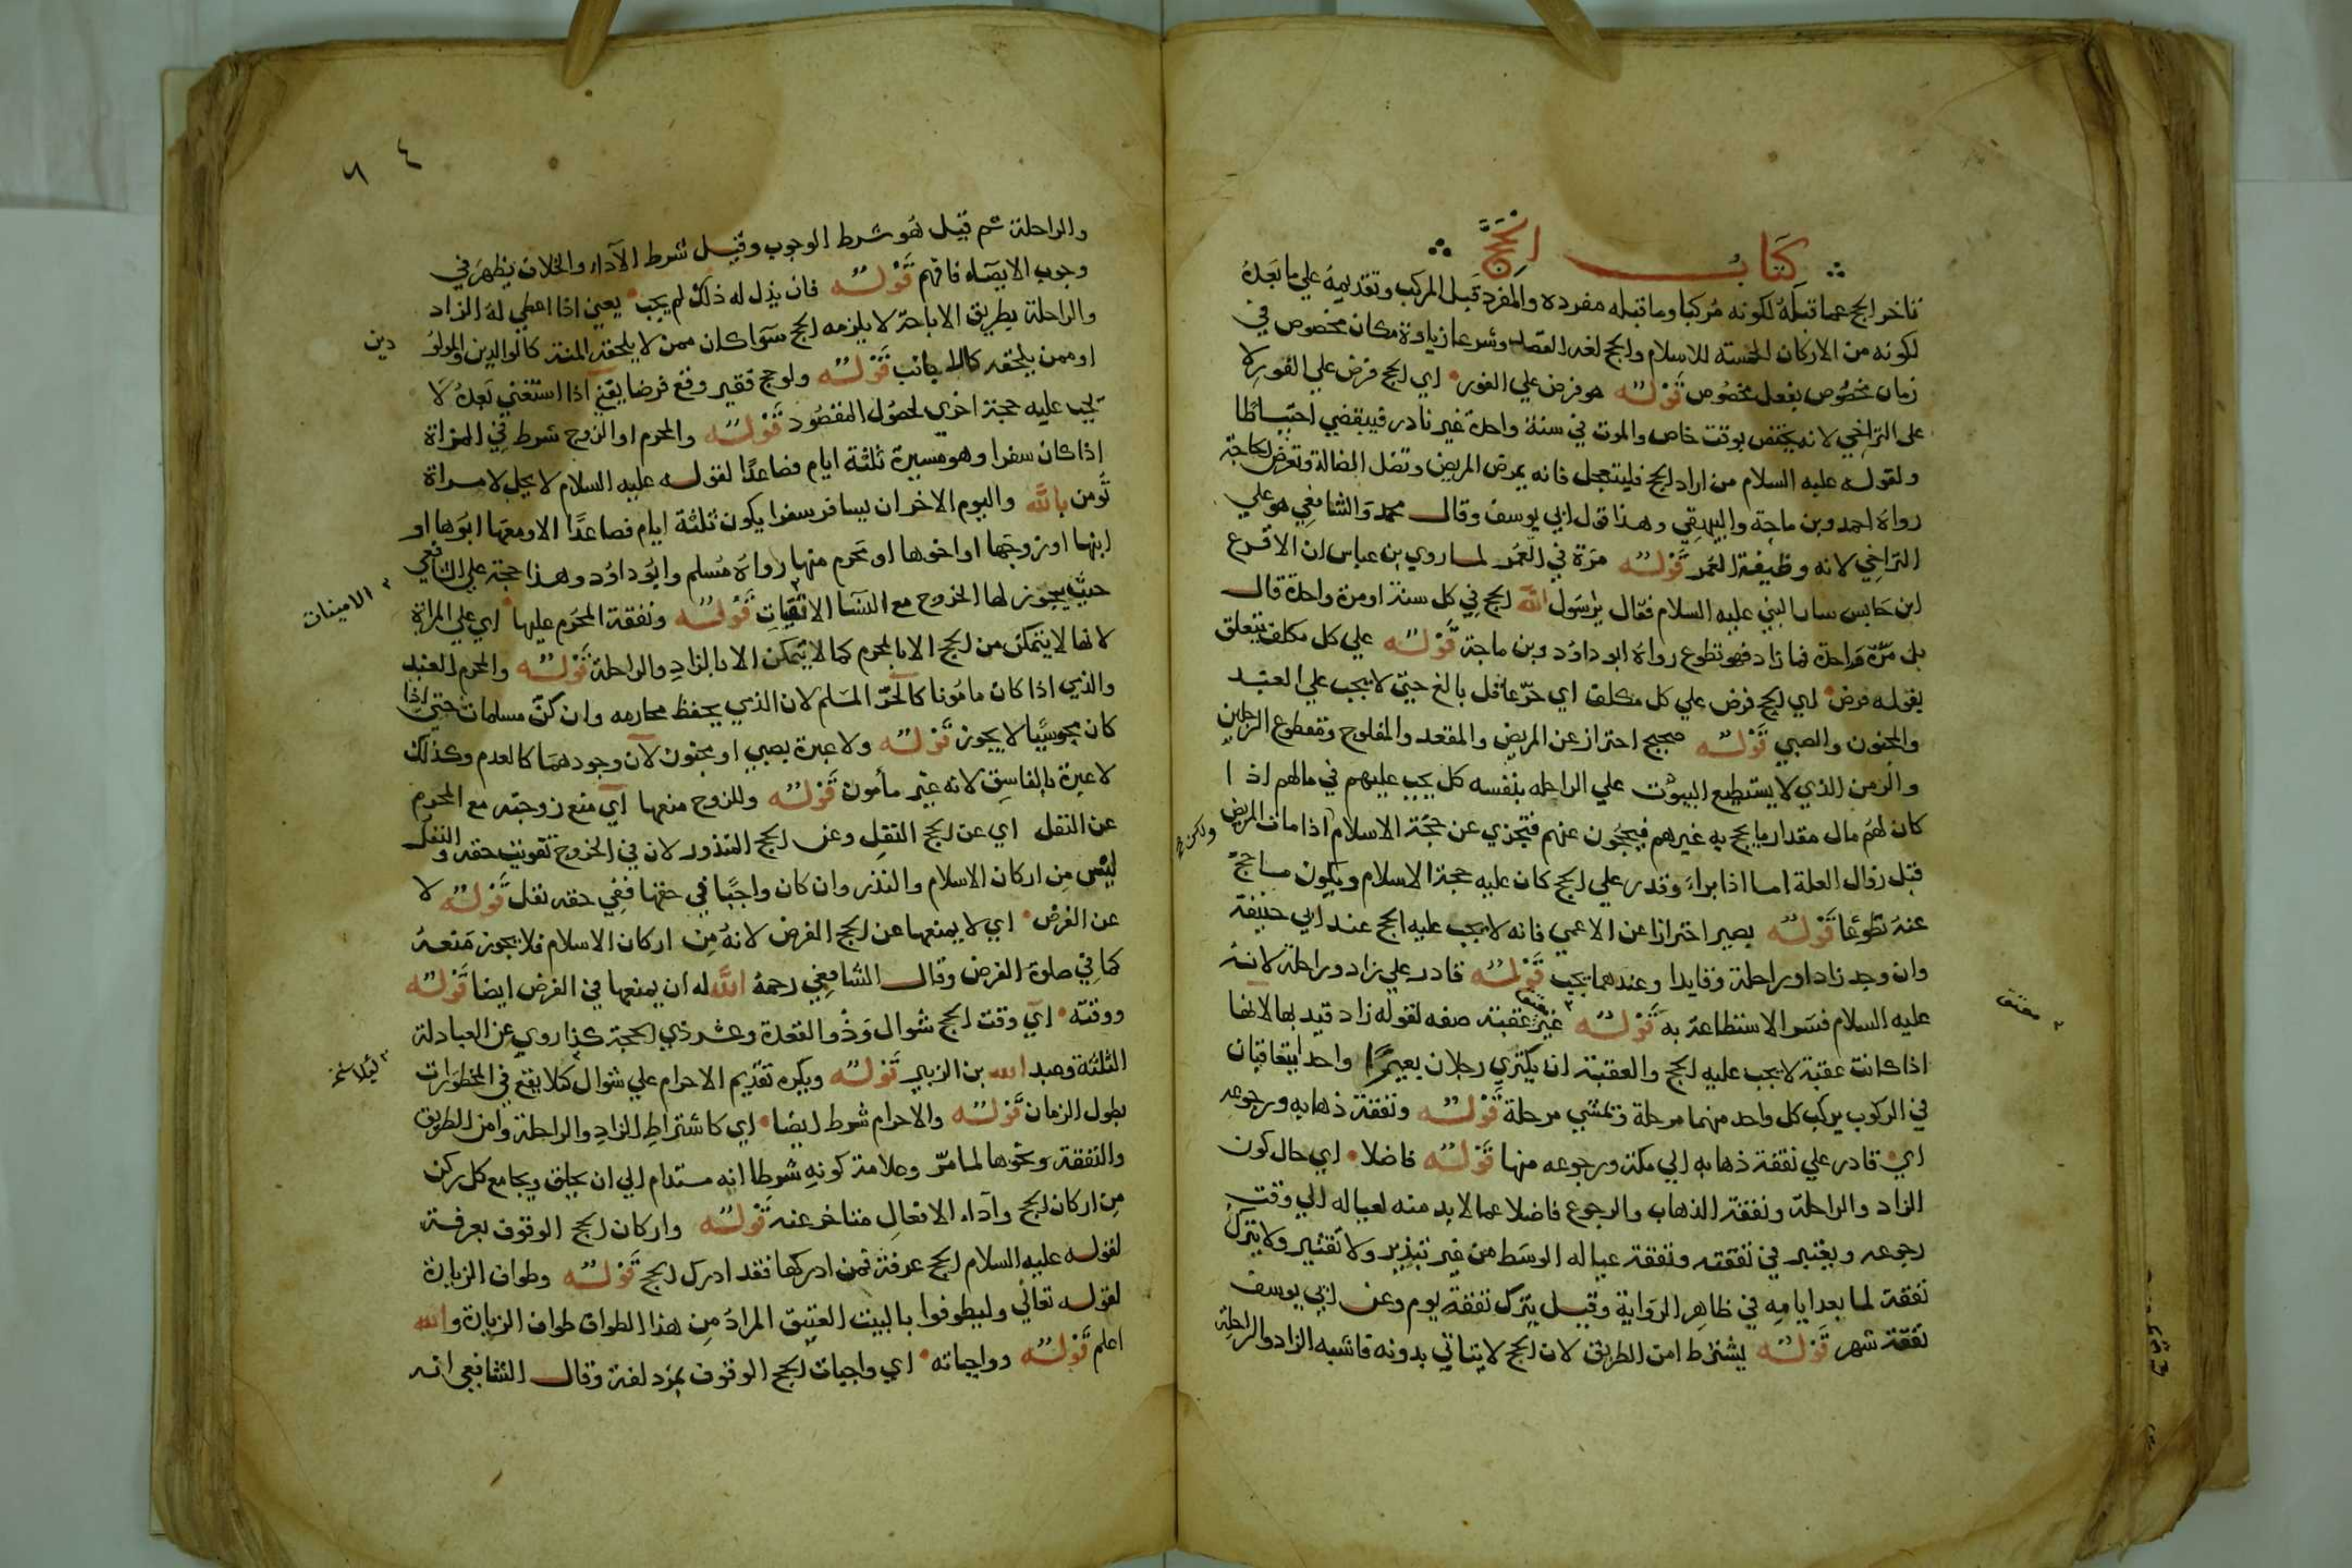 كتاب الحج
تاخر الحج عما قبله لكونه مركبا وما قبله مفرده والمفرد قبل المركب وتقديمه علي ما بعده
لكونه من الاركان الخمسة للاسلام والحج لغة القصد وشرعا زيارة مكان مخصوص في
زمان مخصوص بفعل مخصوص قوله هو فرض علي الفور اي الحج فرض علي الفور لا
على التراخي لانه يختص بوقت خاص والموت في سنة واحدة غير نادر فيبقضي احتياطا
ولقوله عليه السلام من اراد الحج فليتعجل فانه يمرض المريض وتضل الضالة وتعرض الحاجة
رواه احمد وبن ماجة والبيهقي وهذا قول ابي يوسف وقال محمد والشافعي هو علي
التراخي لانه وظيفة العمر قوله مرة في العمر لما روي بن عباس ان الاقرع
ابن حابس سال النبي عليه السلام فقال يرسول الله الحج في كل سنة او مرة واحدة قال
بل مرة واحدة فما زاد فهو تطوع رواه ابو داود وبن ماجة قوله علي كل مكلف يتعلق
بقوله فرض اي الحج فرض علي كل مكلف اي حر عاقل بالغ حتي لا يجب علي العبد
والمجنون والصبي قوله صحيح احتراز عن المريض والمقعد والمفلوج ومقطوع الرجلين
والزمن الذي لا يستطيع الثبوت علي الراحله بنفسه كل يجب عليهم في مالهم اذا
كان لهم مال مقدار ما يحج به غيرهم فيحجون عنهم فتجزي عن حجة الاسلام اذا مات المريض
قبل زوال العلة اما اذا براء وقدر علي الحج كان عليه حجة الاسلام ويكون ما حج
عنه تطوعا قوله بصير احترازا عن الاعمي فانه لا يجب عليه الحج عند ابي حنيفة
وان وجد زادا وراحلة وقايدا وعندهما يجب قوله قادر علي زاد وراحلة لانه
عليه السلام فسر الاستطاعة به قوله غير عقبة صفه لقوله زاد قيد بها لانها
اذا كانت عقبة لا يجب عليه الحج والعقبة ان يكتري رجلان بعيرا واحدا يتعاقبان
في الركوب يركب كل واحد منهما مرحلة ويمشي مرحلة قوله ونفقة ذهابه ورجوعه
اي قادر علي نفقة ذهابه الي مكة ورجوعه منها قوله فاضلا اي حال كون
الزاد والراحلة ونفقة الذهاب والرجوع فاضلا عما لا بد منه لعياله الي وقت
رجوعه ويعتبر في نفقته ونفقة عياله الوسط من غير تبذير ولا تقتير ولا يترك
نفقة لما بعد ايامه في ظاهر الرواية وقيل يترك نفقة يوم وعن ابي يوسف
نفقة شهر قوله يشترط امن الطريق لان الحج لا يتاتي بدونه فاشبه الزاد والراحلة
٦٤
والراحلة ثم قيل هو شرط الوجوب وقيل شرط الآداء والخلاف يظهر في
وجوب الايصاء فافهم قوله فان بذل له ذلك لم يجب يعني اذا اعطي له الزاد
والراحلة بطريق الاباحة لا يلزمه الحج سوا كان ممن لا يلحقه المنة كالوالدين والمولودين
او ممن يلحقه كالاجانب قوله ولو حج فقير وقع فرضا يعني اذا استغني بعده لا
يجب عليه حجة اخري لحصول المقصود قوله والمحرم او الزوج شرط في المراة
اذا كان سفرا وهو مسيرة ثلثة ايام فصاعدا لقوله عليه السلام لا يحل لامراة
تومن بالله واليوم الاخر ان يسافر سفرا يكون ثلثة ايام فصاعدا الا ومعها ابوها او
ابنها او زوجها او اخوها او محرم منها رواه مسلم وابو داود وهذا حجة علي الشافعي
حيث يجوز لها الخروج مع النسا الاتقيات قوله ونفقة المحرم عليها اي علي المراة
الامينات
لانها لا يتمكن من الحج الا بالمحرم كما لا يتمكن الا بالزاد والراحلة قوله والمحرم العبد
والذمي اذا كان مامونا كالحر المسلم لان الذمي يحفظ محارمه وان كن مسلمات حتي اذا
كان مجوسيا لا يجوز قوله ولا عبرة بصبي او مجنون لان وجودهما كالعدم وكذلك
لا عبرة بالفاسق لانه غير مأمون قوله وللزوج منعها اي منع زوجته مع المحرم
عن النفل اي عن الحج النفل وعن الحج النذور لان في الخروج تفويت حقه والنفل
ليس من اركان الاسلام والنذر وان كان واجبا في حقها ففي حقه نفل قوله لا
عن الفرض اي لا يمنعها عن الحج الفرض لانه من اركان الاسلام فلا يجوز منعه
كما في صلوة الفرض وقال الشافعي رحمه الله له ان يمنعها في الفرض ايضا قوله
ووقته اي وقت الحج شوال وذو القعدة وعشر ذي الحجة كذا روي عن العبادلة
الثلثة وعبد الله بن الزبير قوله ويكره تقديم الاحرام علي شوال كيلا يقع في المحظورات
بطول الزمان قوله والاحرام شرط ايضا اي كاشتراط الزاد والراحلة وامن الطريق
والنفقة ونحوها لما مر وعلامة كونه شرطا انه مستدام الي ان يحلق ويجامع كل ركن
من اركان الحج وآداء الافعال متاخر عنه قوله واركان الحج الوقوف بعرفة
لقوله عليه السلام الحج عرفة فمن ادركها فقد ادرك الحج قوله وطواف الزيارة
لقوله تعالي وليطوفوا بالبيت العتيق المراد من هذا الطواف طواف الزيارة والله
اعلم قوله وواجباته اي واجبات الحج الوقوف بمزدلفة وقال الشافعي انه